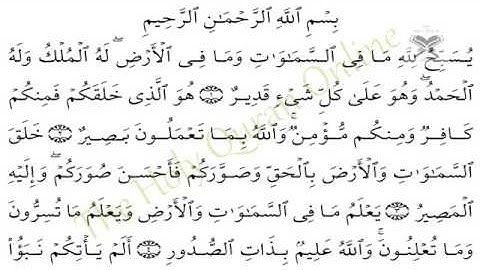 بِسْمِ ٱللَّهِ ٱلرَّحْمَـٰنِ ٱلرَّحِيمِ
يُسَبِّحُ لِلَّهِ مَا فِى ٱلسَّمَـٰوَٰتِ وَمَا فِى ٱلْأَرْضِ ۖ لَهُ ٱلْمُلْكُ وَلَهُ
ٱلْحَمْدُ ۖ وَهُوَ عَلَىٰ كُلِّ شَىْءٍ قَدِيرٌ ۝١ هُوَ ٱلَّذِى خَلَقَكُمْ فَمِنكُمْ
كَافِرٌ وَمِنكُم مُّؤْمِنٌ ۚ وَٱللَّهُ بِمَا تَعْمَلُونَ بَصِيرٌ ۝٢ خَلَقَ
ٱلسَّمَـٰوَٰتِ وَٱلْأَرْضَ بِٱلْحَقِّ وَصَوَّرَكُمْ فَأَحْسَنَ صُوَرَكُمْ ۖ وَإِلَيْهِ
ٱلْمَصِيرُ ۝٣ يَعْلَمُ مَا فِى ٱلسَّمَـٰوَٰتِ وَٱلْأَرْضِ وَيَعْلَمُ مَا تُسِرُّونَ
وَمَا تُعْلِنُونَ ۚ وَٱللَّهُ عَلِيمٌۢ بِذَاتِ ٱلصُّدُورِ ۝٤ أَلَمْ يَأْتِكُمْ نَبَؤُا۟
The Holy Quran Online